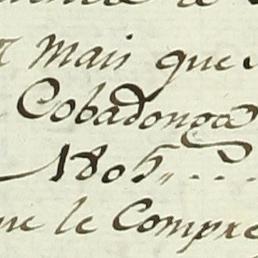 mais que
Cobadonga
1805, ...
le Compre